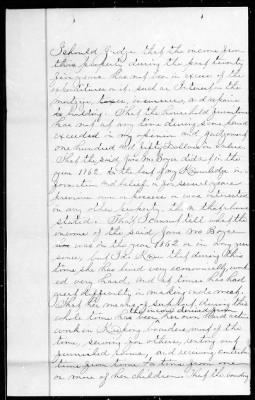 I should judge that the income from
this property during the past twenty
five years has not been in excess of the
expenditures on it, such as Interest on the
mortgage, taxes, insurance, and repairs
to building. That the household furniture
has not at any time during said time
exceeded in my opinion and judgment
one hundred and fifty Dollars in value.
That the said Jane McBoyce did not in the
year 1862 to the best of my knowledge in-
formation and belief, or for several years
previous own or possess or was interested
in any other property than that above
stated. That I cannot tell what the
income of the said Jane McBoyce
was in the year 1862 or in any year
since, but I do know that during this
time she has lived very economically, work-
ed very hard, and at times has had
great difficulty in making ends meet.
That her means of support during this
whole time has been the income derived from her own hard actual
work in keeping boarders most of the
time, sewing for others, renting out
furnished rooms, and receiving
time from time to time from one
or more of her children. That the